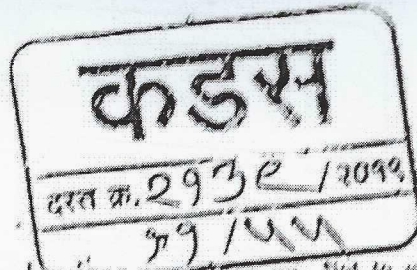 कडस
दस्त क्र. २१३९ / २०११
/ ५५